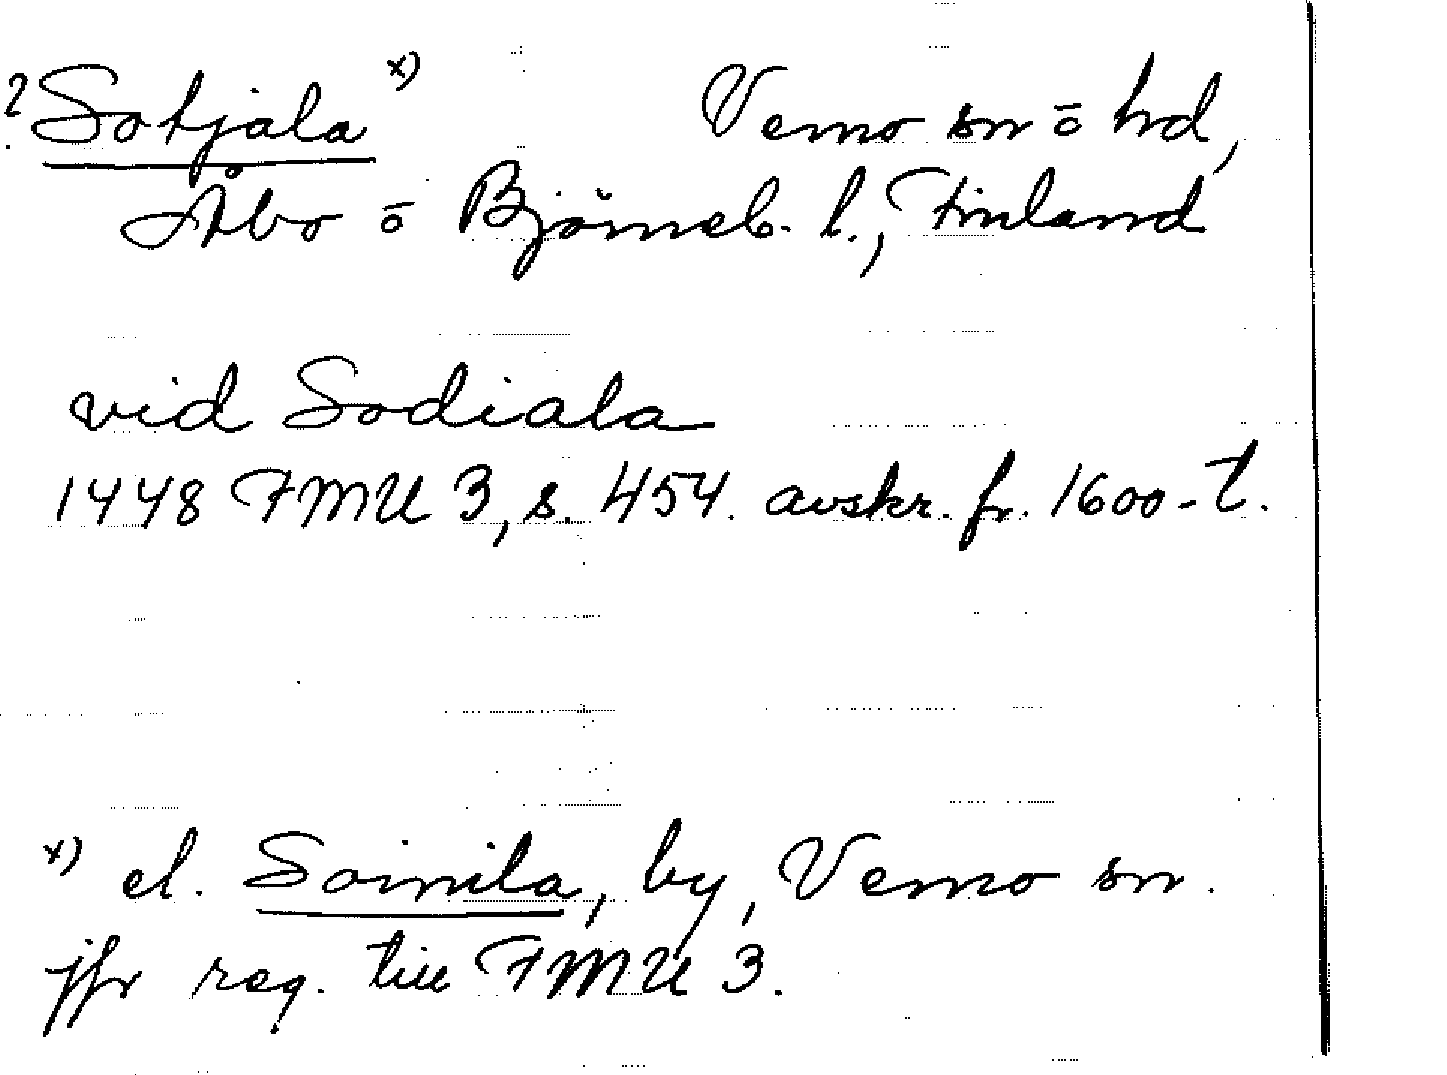 ? Sotjala x) Vemo sn ō hd,
Åbo ō Björneb. l., Finland
vid Sodiala
1448 FMU 3, s. 454. avskr. fr. 1600-t.
x) el. Soinila, by, Vemo sn.
jfr reg. till FMU 3.